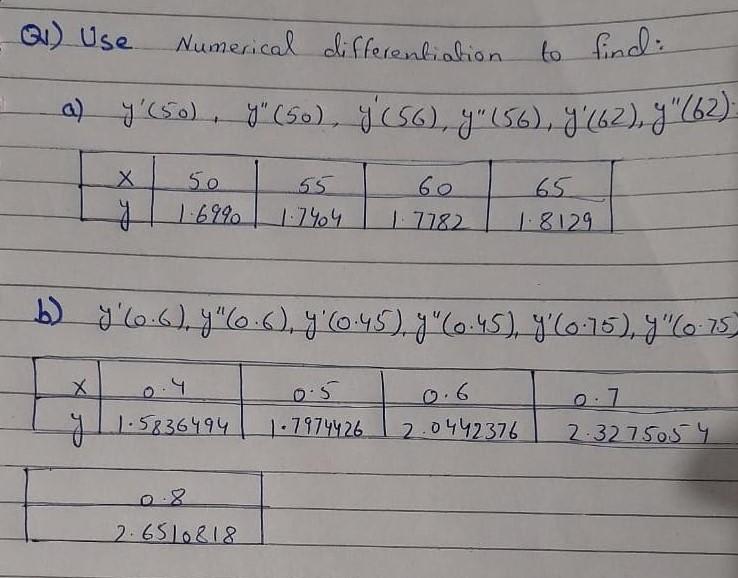 Q1) Use Numerical differentiation to find:
a) y'(50), y"(50), y'(56), y"(56), y'(62), y"(62).
x 50 55 60 65
y 1.6990 1.7404 1.7782 1.8129
b) y'(0.6), y"(0.6), y'(0.45), y"(0.45), y'(0.75), y"(0.75)
x 0.4 0.5 0.6 0.7
y 1.5836494 1.7974426 2.0442376 2.3275054
0.8
2.6510818